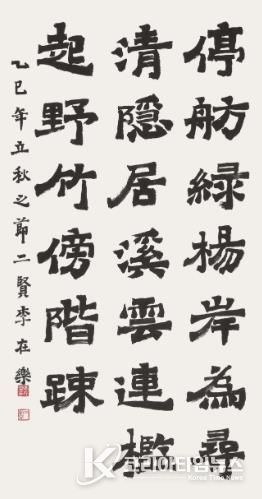 停舫綠楊岸為尋
清隱居溪雲連檻
起野竹傍階踈
乙巳年立秋之節二賢李在樂
K 코리아타임뉴스
Korea Time News